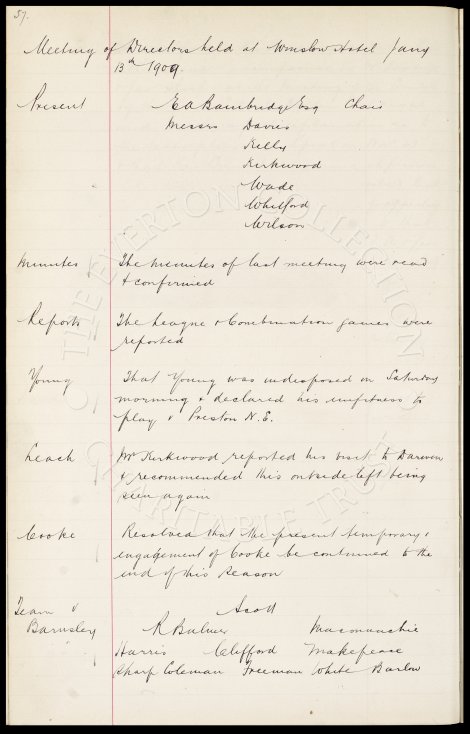 57.
Meeting of Directors held at Winslow Hotel Jany
13th 1909.
Present E A Bainbridge Esq Chair
Messrs Davies
Kelly
Kirkwood
Wade
Whitford
Wilson
Minutes The minutes of last meeting were read
& confirmed
Reports The League & Combination games were
reported
Young That Young was indisposed on Saturday
morning & declared his unfitness to
play v Preston N.E.
Leach Mr Kirkwood reported his visit to Darwen
& recommended this outside left being
seen again
Cooke Resolved that the present temporary
engagement of Cooke be continued to the
end of this season
Team v Scott
Barnsley R Balmer Maconnachie
Harris Clifford Makepeace
Sharp Coleman Freeman White Barlow
THE EVERTON COLLECTION
CHARITABLE TRUST